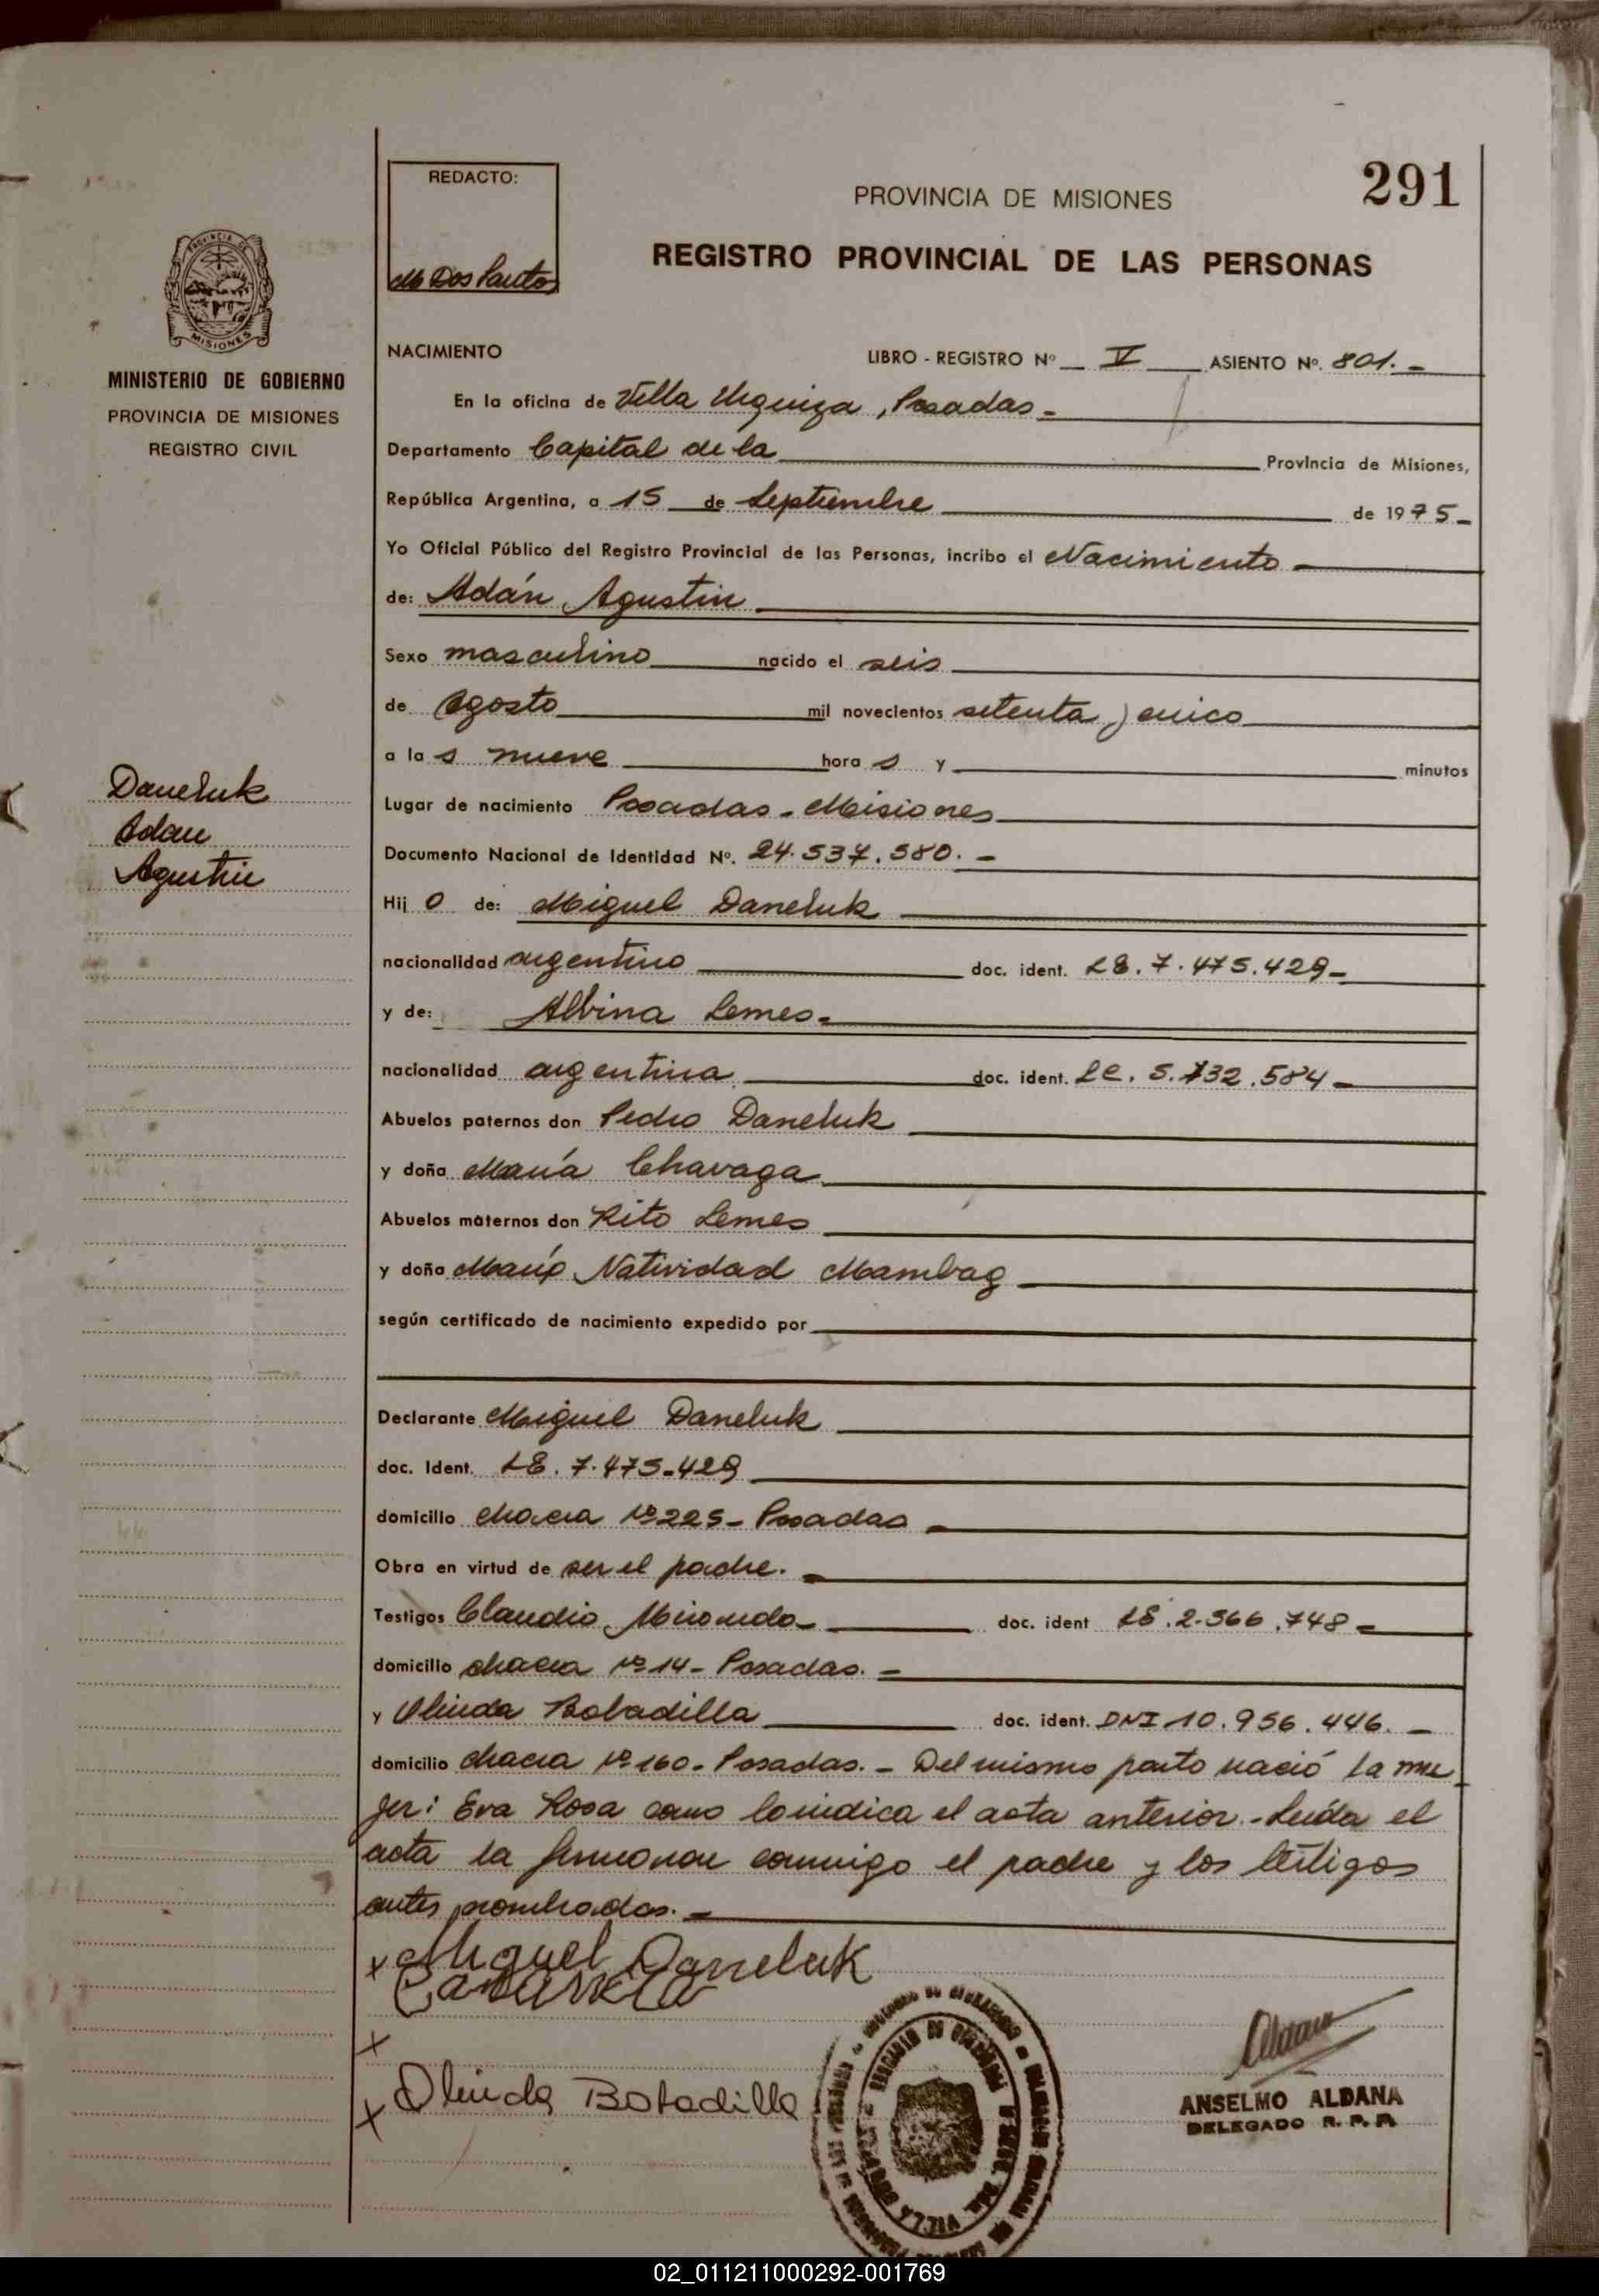 291
REDACTO:
M Dos Santos
PROVINCIA DE MISIONES
REGISTRO PROVINCIAL DE LAS PERSONAS
PROVINCIA DE
MISIONES
MINISTERIO DE GOBIERNO
PROVINCIA DE MISIONES
REGISTRO CIVIL
NACIMIENTO LIBRO - REGISTRO Nº V ASIENTO Nº. 801.-
En la oficina de Villa Urquiza, Posadas-
Departamento Capital de la Provincia de Misiones,
República Argentina, a 15 de Septiembre de 1975-
Yo Oficial Público del Registro Provincial de las Personas, incribo el Nacimiento-
de: Adán Agustin
Sexo masculino nacido el seis
de agosto mil novecientos setenta y cinco
a las nueve horas y minutos
Daneluk
Adan
Agustin
Lugar de nacimiento Posadas - Misiones
Documento Nacional de Identidad Nº. 24.537.580.-
Hijo de: Miguel Daneluk
nacionalidad argentino doc. ident. LE. 7.475.429-
y de: Albina Lemes-
nacionalidad argentina doc. ident. LC. 5.732.584-
Abuelos paternos don Pedro Daneluk
y doña María Chavaga
Abuelos maternos don Rito Lemes
y doña María Natividad Mambag
según certificado de nacimiento expedido por
Declarante Miguel Daneluk
doc. Ident. LE. 7.475.429
domicilio chacra Nº225- Posadas
Obra en virtud de ser el padre.
Testigos Claudio Miranda- doc. ident LE.2.366.748-
domicilio chacra Nº14- Posadas.-
y Olinda Bobadilla doc. ident. DNI 10.956.446.-
domicilio chacra Nº160- Posadas.- Del mismo parto nació la mu
jer: Eva Rosa como lo indica el acta anterior.- Leída el
acta la firmaron conmigo el padre y los testigos
antes nombrados.-
x Miguel Daneluk
x
x Olinda Bobadilla
ANSELMO ALDANA
DELEGADO R. P. P.
02_011211000292-001769